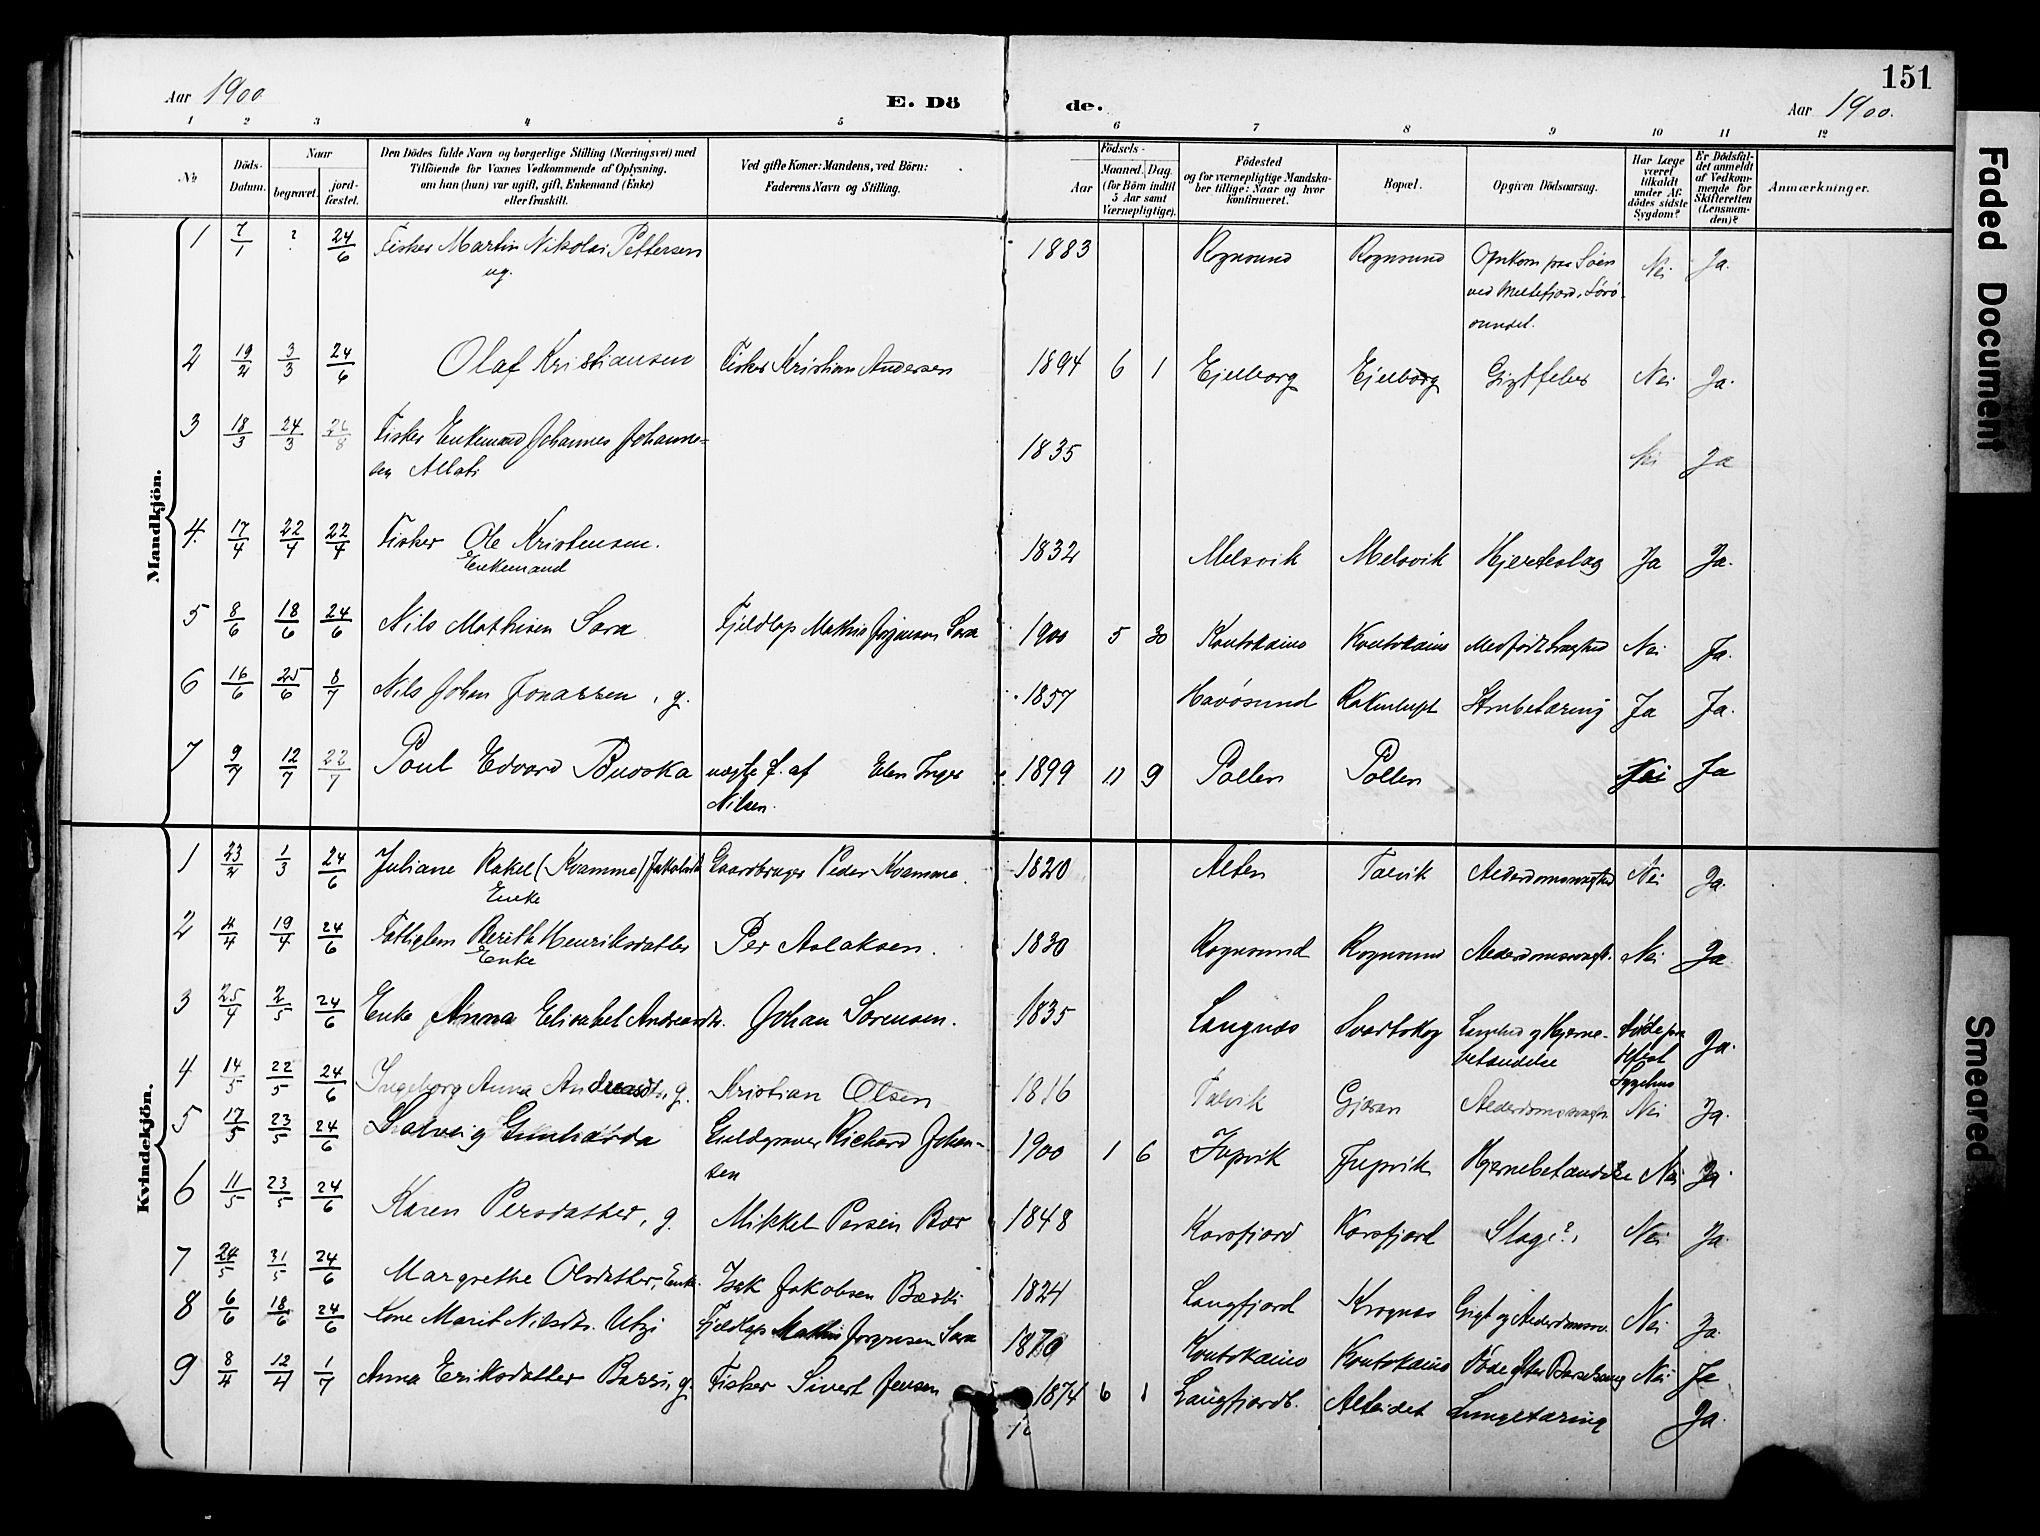 151
Aar 1900
E. Dö de.
Aar 1900.
1 2 3 4 5 6 7 8 9 10 11 12
No
Döds-Datum.
Naar
begravet.
jord-fæstet.
Den Dödes fulde Navn og borgerlige Stilling (Næringsvei) med
Tilföiende for Voxnes Vedkommende af Oplysning,
om han (hun) var ugift, gift, Enkemand (Enke)
eller fraskilt.
Ved gifte Koner: Mandens, ved Börn:
Faderens Navn og Stilling.
Födsels-
Aar
Maaned. Dag.
(for Börn indtil
5 Aar samt
Værnepligtige).
Födested
og for værnepligtige Mandska-
ber tillige: Naar og hvor
konfirmeret.
Bopæl.
Opgiven Dödsaarsag.
Har Læge
været
tilkaldt
under Af-
dödes sidste
Sygdom?
Er Dödsfal-
det anmeldt
af Vedkom-
mende for
Skifteretten
(Lensman-
den)?
Anmærkninger.
Mandkjön.
1 7/1 ? 24/6 Fisker Martin Nikolai Pettersen 1883 Rognsund Rognsund Omkom paa Søen Nei Ja.
ug. ved Sørø-
sundet.
2 19/2 3/3 24/6 Olaf Kristiansen Fisker Kristian Andersen 1894 6 1 Ejelborg Ejelborg Gigtfeber Nei Ja.
3 18/3 24/3 26/8 Fisker Enkemand Johannes Johanne- 1835 Nei Ja
sen
4. 17/4 22/4 22/4 Fisker Ole Kristensen. 1832 Melsvik Melsvik Hjerteslag Ja Ja.
Enkemand
5 8/6 18/6 24/6 Nils Mathisen Sara Fjeldlap Mathis Jørgensen Sara 1900 5 30 Koutokeino Koutokeino Medfødt Svaghed Nei Ja.
6 16/6 25/6 8/7 Nils Johan Jonassen, g. 1857 Havøsund Strubetæring Ja Ja.
7 9/7 12/7 22/7 Poul Edvard uægte f. af Elen Inger 1899 11 9 Pollen Pollen Nei Ja
Nilsen.
Kvindekjön.
1 23/2 1/3 24/6 Juliane Rakel (Kvamme) Gaardbruger Peder Kvamme. 1820 Alten Talvik Alderdomssvaghed Nei Ja.
Enke
2 4/4 19/4 24/6 Fattiglem Berith Henriksdatter Per Aslaksen. 1830 Rognsund Rognsund Alderdomssvagh. Nei Ja
Enke
3 25/4 2/5 24/6 Enke Anna Elisabet Andreasdtr. Johan Sørensen. 1835 Langnæs Svartskog og Hjerne- Døde paa Ja.
betændelse
Sygehus
4 14/5 22/5 24/6 Ingeborg Anna Andreasdtr, g. Kristian Olsen 1816 Talvik Alderdomssvagh. Nei Ja.
5 17/5 23/5 24/6 Solveig Gunharda Guldgraver Richard Johan- 1900 1 6 Jupvik Jupvik Hjernebetændelse Nei Ja.
sen
6 11/5 23/5 24/6 Karen Persdatter, g. Mikkel Persen Bær 1848 Korsfjord Korsfjord Slag?, Nei Ja.
7 24/5 31/5 24/6 Margrethe Olsdatter, Enke. Isak Jakobsen 1824 Langfjord Krognæs Gigt og Alderdomssv. Nei Ja.
8 6/6 18/6 24/6 Kone Marit Nilsdtr. Utsi Fjeldlap Mathis Jørgensen Sara 1870 Koutokeino Koutokeino Døde efter Barselseng Nei Ja
9 8/4 12/4 1/7 Anna Eriksdatter g. Fisker Sivert Jensen 1874 6 1 Langfjordb. Alteidet Lungetæring Ja.
Faded Document
Smeared